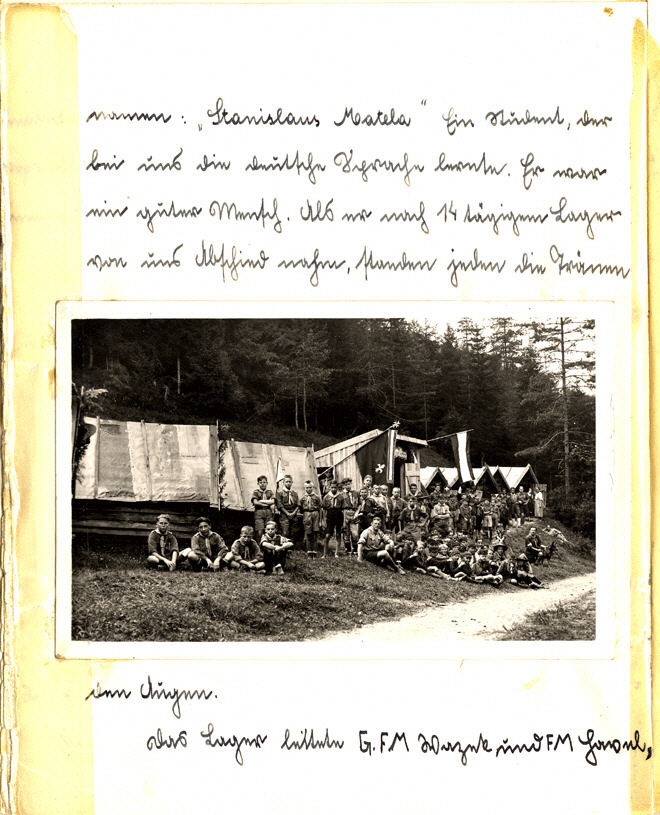 namen: „Stanislaus Matela" Ein Student, der
bei uns die deutsche Sprache lernte. Er war
ein guter Mensch. Als er nach 14 tägigem Lager
von uns Abschied nahm, standen jeden die Tränen
den Augen.
Das Lager leitete G.FM Wazek und FM Havel,